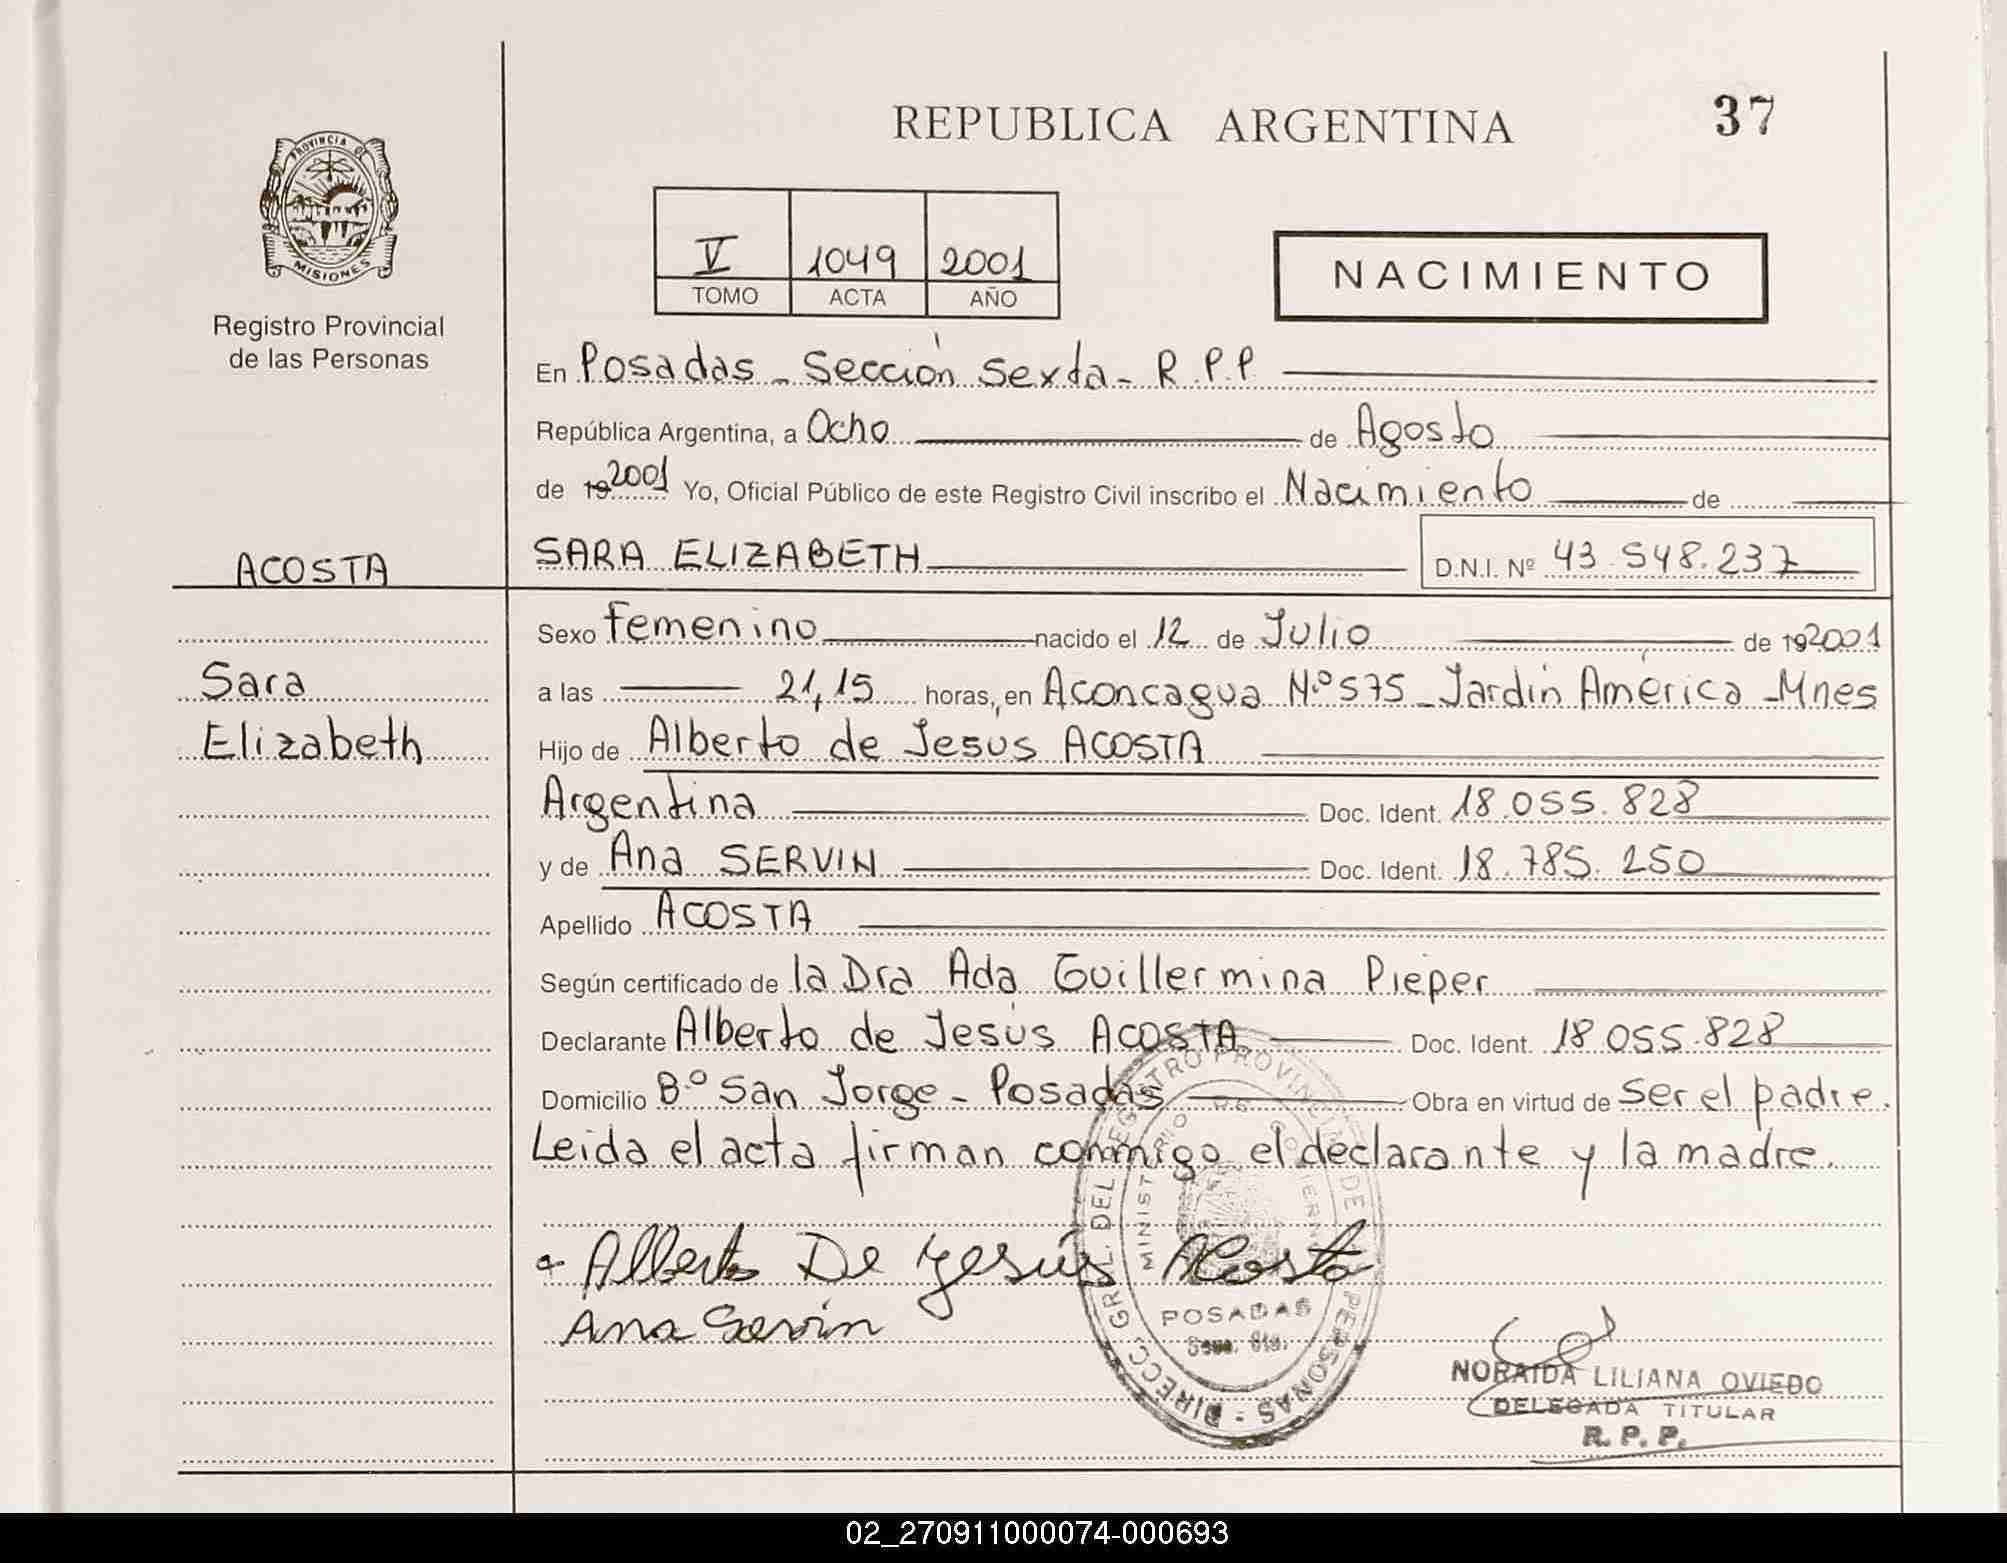 REPUBLICA ARGENTINA
37
PROVINCIA DE
MISIONES
Registro Provincial
de las Personas
V 1049 2001
TOMO ACTA AÑO
NACIMIENTO
En Posadas - Sección Sexta - R.P.P
República Argentina, a Ocho de Agosto
de 19 2001 Yo, Oficial Público de este Registro Civil inscribo el Nacimiento de
ACOSTA
SARA ELIZABETH D.N.I. Nº 43.548.237
Sexo femenino nacido el 12 de Julio de 19 2001
Sara
a las 21,15 horas, en Aconcagua N.º 575 - Jardín América - Mnes
Elizabeth
Hijo de Alberto de Jesús ACOSTA
Argentina Doc. Ident. 18.055.828
y de Ana SERVIN Doc. Ident. 18.785.250
Apellido ACOSTA
Según certificado de la Dra Ada Guillermina Pieper
Declarante Alberto de Jesús ACOSTA Doc. Ident. 18.055.828
Domicilio B.º San Jorge - Posadas Obra en virtud de ser el padre.
Leida el acta firman conmigo el declarante y la madre.
Alberto De Jesús Acosta
Ana Servin
DIRECC. GRAL. DEL REGISTRO PROVINCIAL DE PERSONAS
MINISTERIO DE GOBIERNO
POSADAS
NORAIDA LILIANA OVIEDO
DELEGADA TITULAR
R. P. P.
02_270911000074-000693